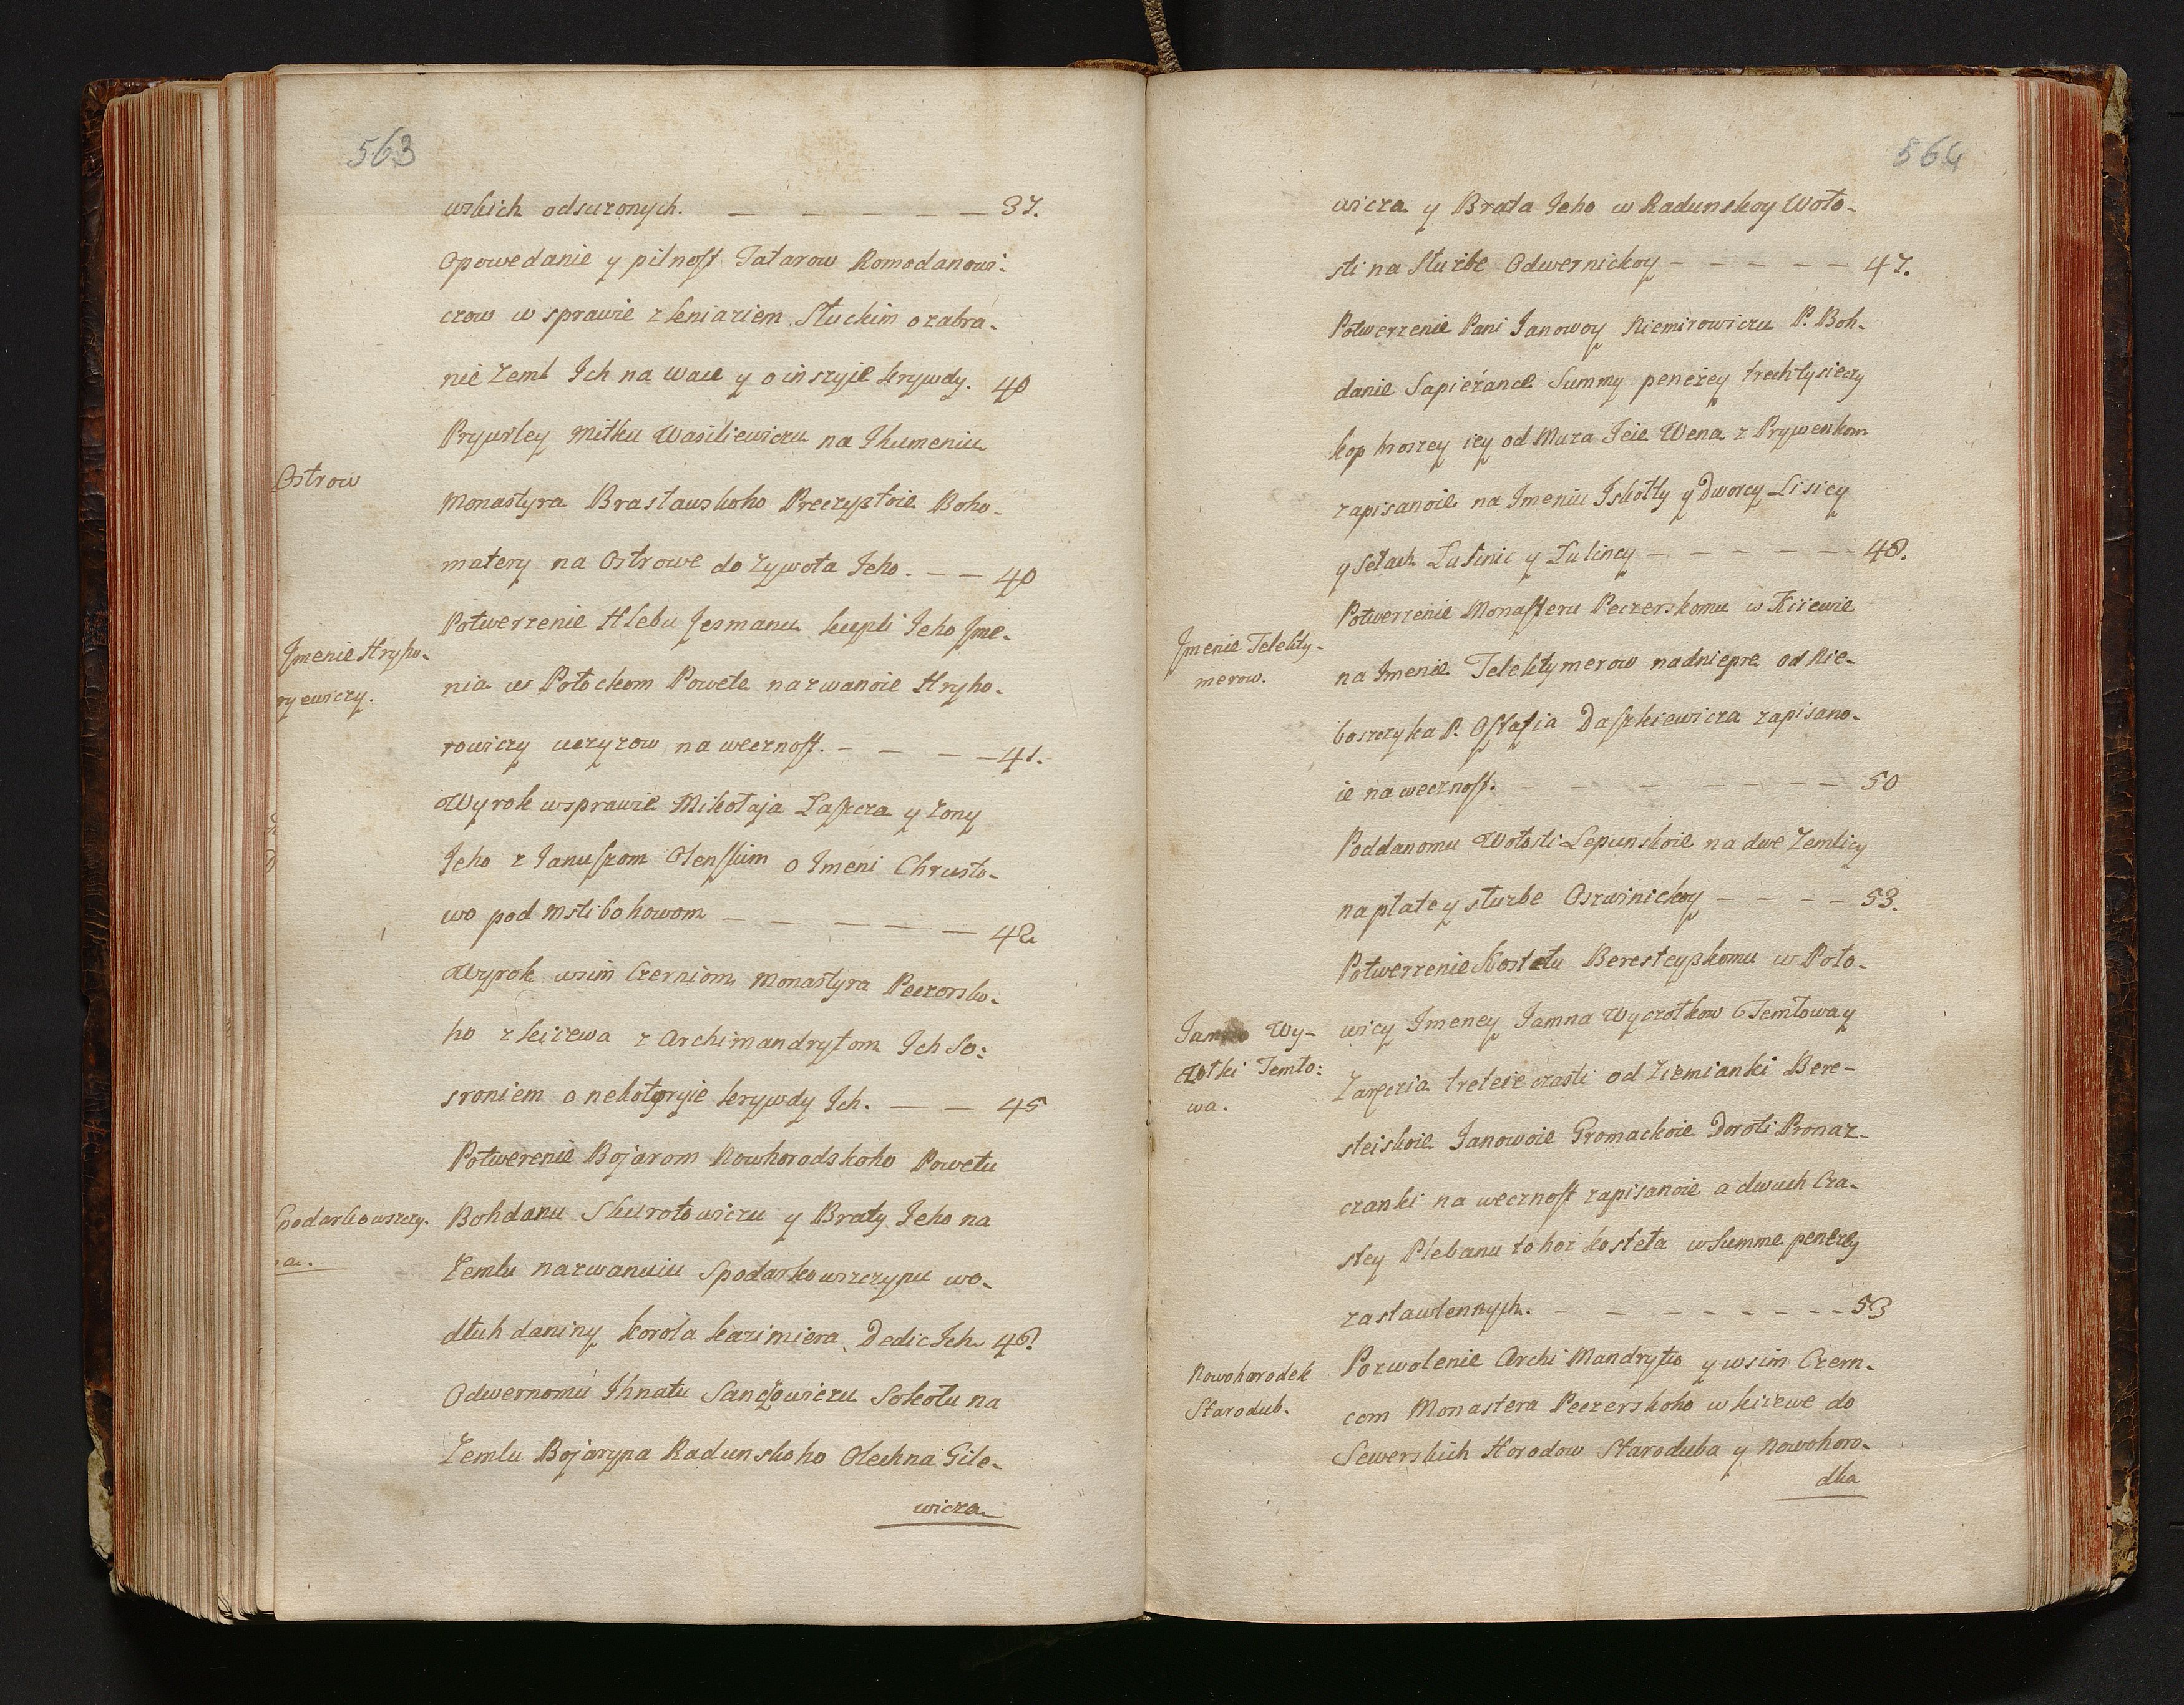 563
wskich odsuzonych. — — — — — — 37.
Opowedanie y pilnost Tatarow Romodanowi-
czow w sprawie z kniaziem Słuckim o zabra-
nie Zeml Ich na Wace y o inszyie krywdy. 40
Prywiley Mitku Wasiliewiczu na Ihumeniu
Ostrow
Monastyra Brasławskoho Preczystoie Boho-
matery na Ostrowe do żywota Jeho. — — 40
Potwerzenie Hlebu Jesmanu kupli Jeho Jme-
Jmenie Hryho-
nia w Połockom Powete nazwanoie Hryho-
ryewiczy.
rowiczy uczyzow na wecznost. — — — — 41.
Wyrok wsprawie Mikołaja Łaszcza y żony
Jeho z Januszom Olenskim o Jmeni Chrusto-
wo pod Mstibohowom — — — — — 42
Wyrok wsim Czerniom Monastyra Peczersko-
ho z kiiewa z Archimandrytom Ich So:
sroniem o nekotoryie krywdy Ich. — — 45
Potwerenie Bojarom Nowhorodskoho Powetu
Spodarkowszczy-
Bohdanu Skurołowiczu y Braty Jeho na
na.
Zemlu nazwanuiu Spodarkowszczynu wo-
dłuh daniny korola kazimiera Dedic Ich 46.
Odwernomu Ihnatu Sanczowiczu Sokołu na
Zemlu Bojaryna Radunskoho Olechna Gile-
wicza
564
wicza y Brata Jeho w Radunskoy Woło-
sti na Służbe Odwernickoy — — — — — 47.
Potwerzenie Pani Janowoy Niemirowiczu P. Boh-
danie Sapieżance Summy penezey trech tysieczy
kop hroszey iey od Muża Jeie Wena z Prywenkom
zapisanoie na Jmeniu Iskołty y Dworcy Lisicy
y Sełach Łusinic y Lulincy — — — — — — 48.
Potwerzenie Monasteru Peczerskomu w Kiiewie
Jmenie Telekty-
merow.
na Jmenie Telektymerow nadniepre od Nie-
boszczyka P. Ostafia Daszkiewicza zapisano-
ie na wecznost. — — — — — — — 50
Poddanomu Wołosti Lepunskoie na dwe Zemlicy
na płate y służbe Oszwinickoy — — — — 53.
Potwerzenie Kostełu Beresteyskomu w Poło-
Jamno Wy-
wicy Jmeney Jamna Wyczołkow Temłowa y
czołki Temło:
Zarzeczia treteie czasti od Ziemianki Bere-
wa.
steiskoie Janowoie Gromackoie Doroti Pronaz-
czanki na wecznost zapisanoie a dwuch Cza-
stey Plebanu tohoż kosteła w Summe penezey
zastawlennych. — — — — — — — — 53
Nowohorodek
Pozwolenie Archi Mandrytu y wsim Czern-
Starodub.
com Monastera Peczerskoho w kiiewe do
Sewerskich Horodow Staroduba y Nowohoro-
dka